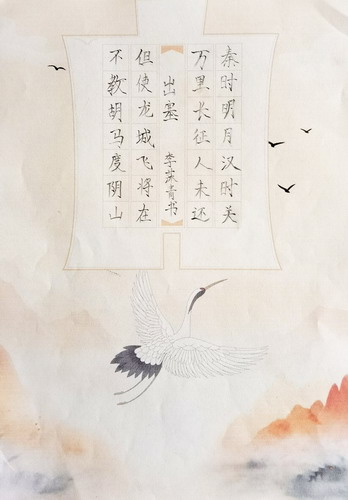 秦时明月汉时关
万里长征人未还
出塞
李荣青书
但使龙城飞将在
不教胡马度阴山